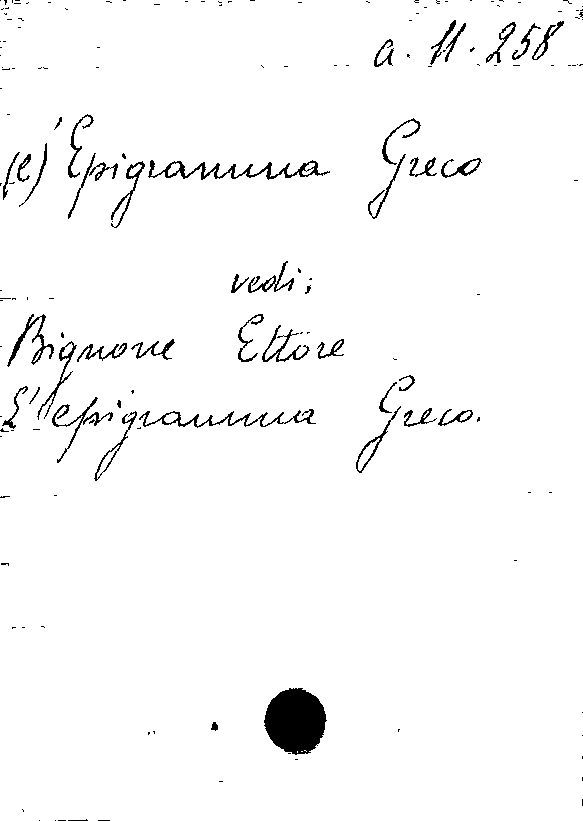 a. 11. 258
(l') Epigramma Greco
vedi:
Bignone Ettore
L'epigramma Greco.